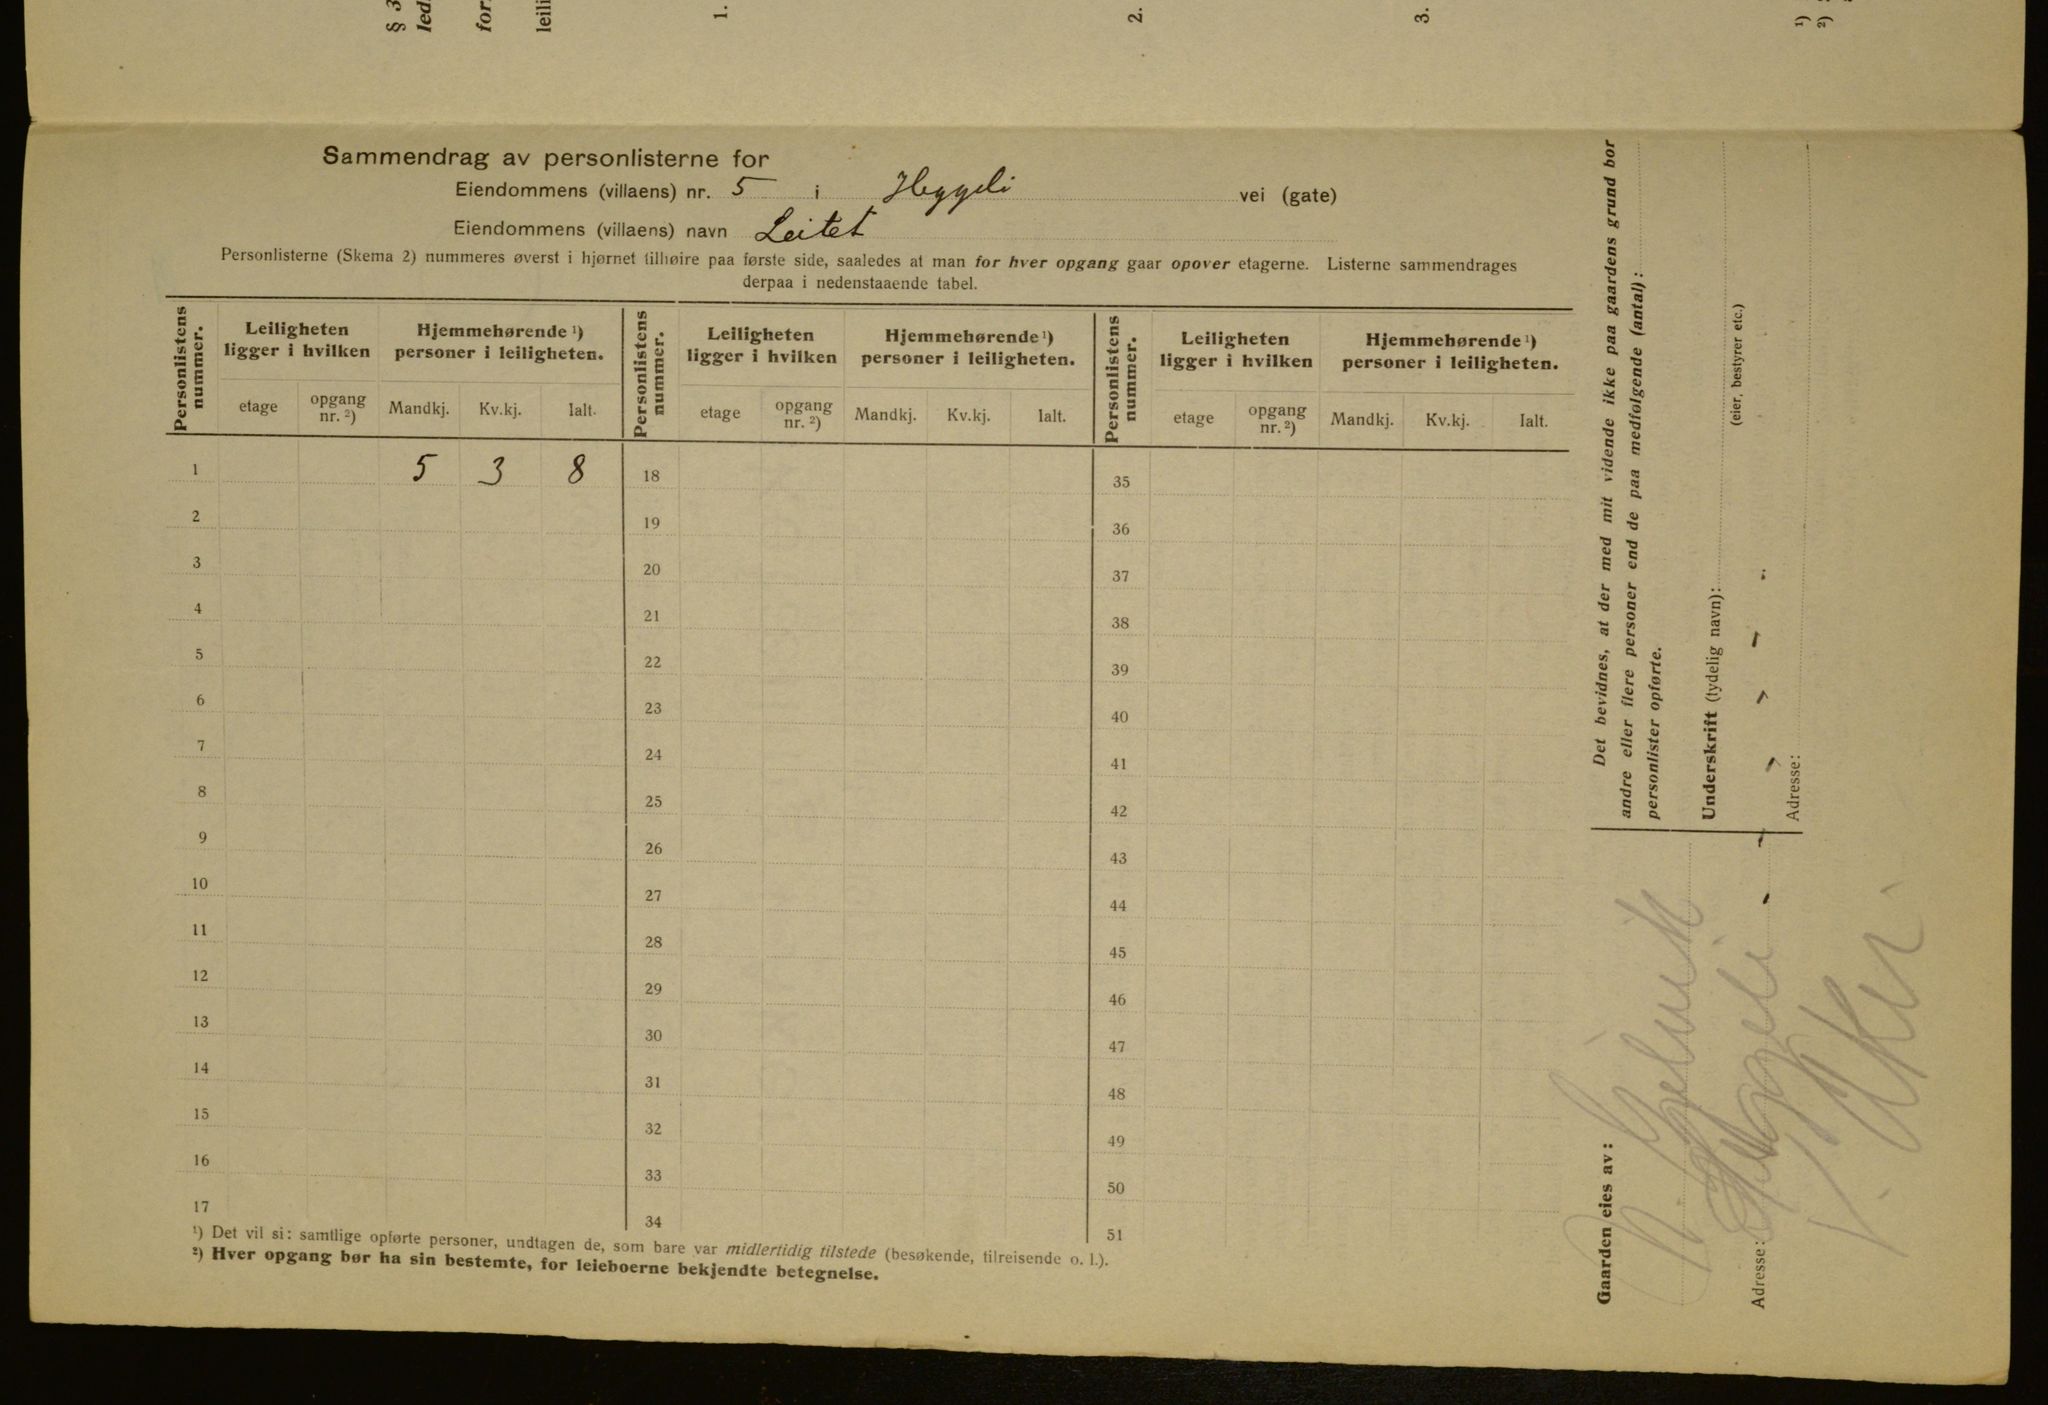 § 3
led
for
leili
1.
2.
3.
¹)
²)
Sammendrag av personlisterne for
Eiendommens (villaens) nr. 5 i Heggeli vei (gate)
Eiendommens (villaens) navn Leitet
Personlisterne (Skema 2) nummeres øverst i hjørnet tilhøire paa første side, saaledes at man for hver opgang gaar opover etagerne. Listerne sammendrages
derpaa i nedenstaaende tabel.
Personlistens nummer. Leiligheten ligger i hvilken Hjemmehørende ¹) personer i leiligheten. Personlistens nummer. Leiligheten ligger i hvilken Hjemmehørende ¹) personer i leiligheten. Personlistens nummer. Leiligheten ligger i hvilken Hjemmehørende ¹) personer i leiligheten.
etage opgang nr. ²) Mandkj. Kv.kj. Ialt. etage opgang nr. ²) Mandkj. Kv.kj. Ialt. etage opgang nr. ²) Mandkj. Kv.kj. Ialt.
1 5 3 8 18 35
2 19 36
3 20 37
4 21 38
5 22 39
6 23 40
7 24 41
8 25 42
9 26 43
10 27 44
11 28 45
12 29 46
13 30 47
14 31 48
15 32 49
16 33 50
17 34 51
¹) Det vil si: samtlige opførte personer, undtagen de, som bare var midlertidig tilstede (besøkende, tilreisende o. l.).
²) Hver opgang bør ha sin bestemte, for leieboerne bekjendte betegnelse.
Det bevidnes, at der med mit vidende ikke paa gaardens grund bor
andre eller flere personer end de paa medfølgende (antal):
personlister opførte.
Underskrift (tydelig navn):
(eier, bestyrer etc.)
Adresse:
Gaarden eies av:
Adresse: Heggeli
V. Aker